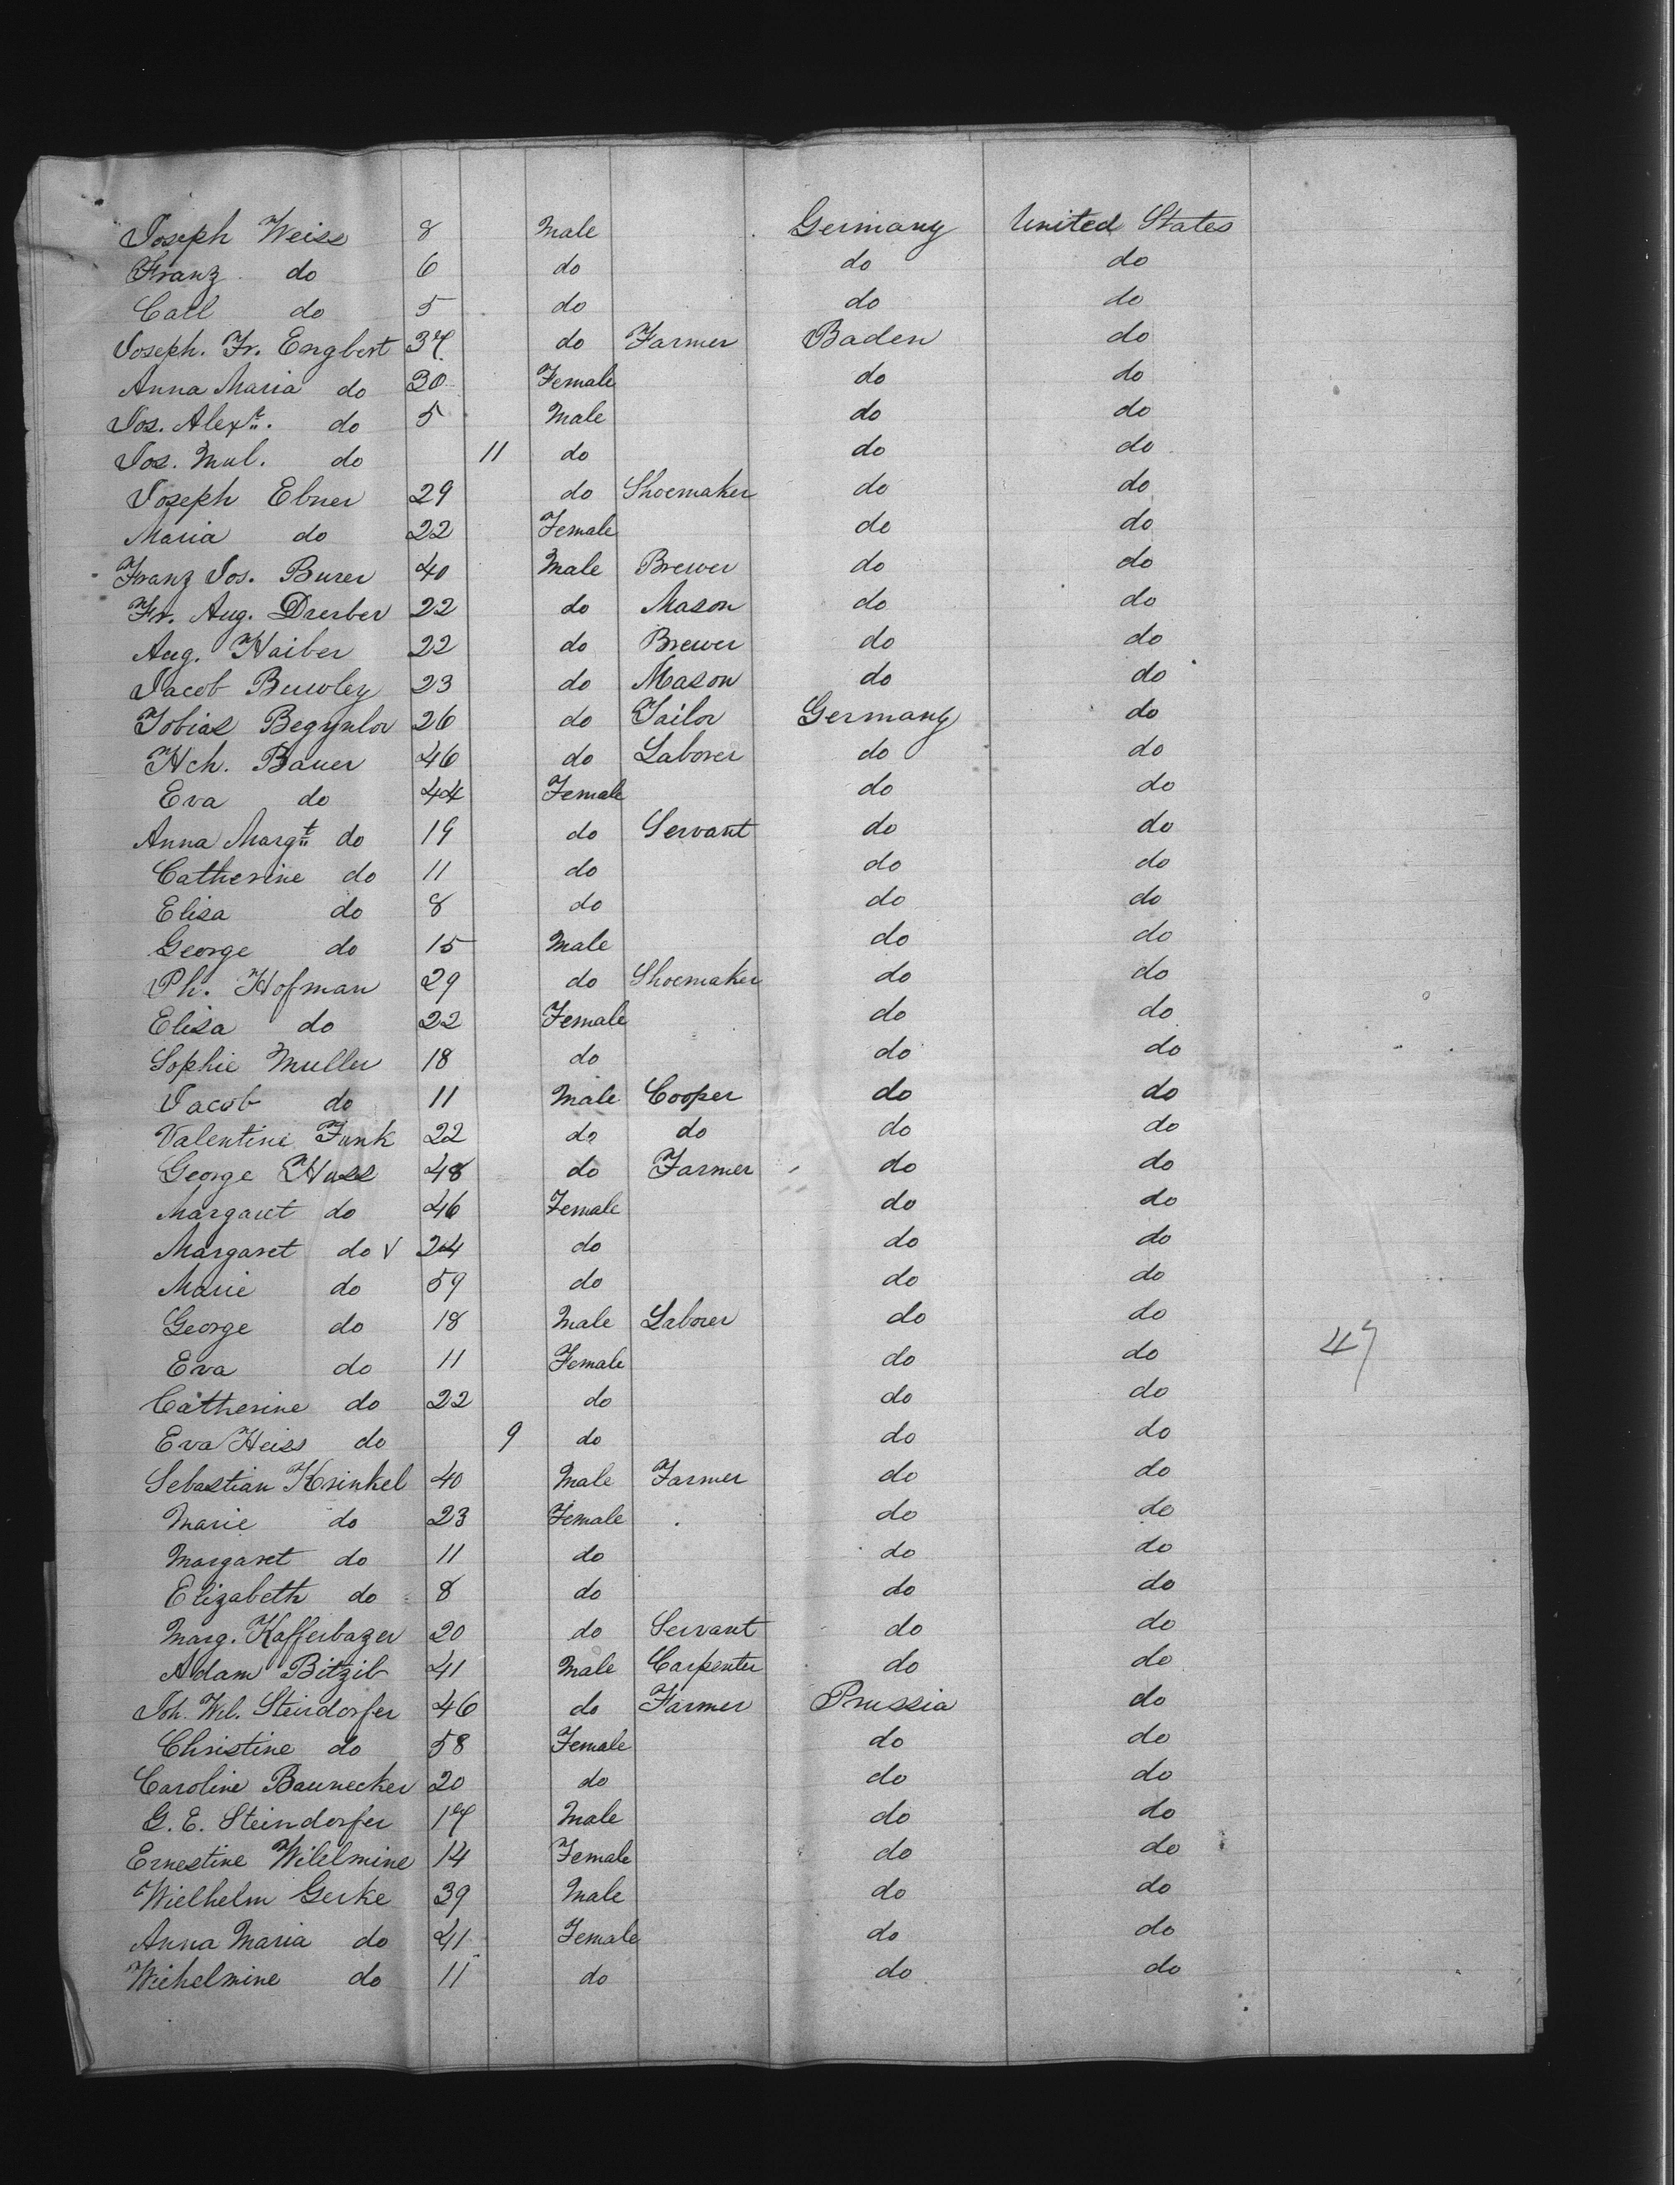 Joseph Weiss 8 Male Germany United States
Franz do 6 do do do
Carl do 5 do do do
Joseph. Fr. Engbert 37 do Farmer Baden do
Anna Maria do 30 Female do do
Jos. Alexr. do 5 Male do do
Jos. Mul. do 11 do do do
Joseph Ebner 29 do Shoemaker do do
Maria do 22 Female do do
Franz Jos. Burer 40 Male Brewer do do
Fr. Aug. Drerber 22 do Mason do do
Aug. Haiber 22 do Brewer do do
Jacob 23 do Mason do do
Tobias 26 do Tailor Germany do
Hch. Bauer 46 do Laborer do do
Eva do 44 Female do do
Anna Margt do 19 do Servant do do
Catherine do 11 do do do
Elisa do 8 do do do
George do 15 Male do do
Ph. Hofman 29 do Shoemaker do do
Elisa do 22 Female do do
Sophie Muller 18 do do do
Jacob do 11 Male Cooper do do
Valentine Funk 22 do do do do
George Huss 48 do Farmer do do
Margaret do 46 Female do do
Margaret do v 24 do do do
Marie do 59 do do do
George do 18 Male Laborer do do
Eva do 11 Female do do 47
Catherine do 22 do do do
Eva Heiss do 9 do do do
Sebastian Krinkel 40 Male Farmer do do
Marie do 23 Female do do
Margaret do 11 do do do
Elizabeth do 8 do do do
Marg. Kafferbazer 20 do Servant do do
Adam Bitzib 41 Male Carpenter do do
Joh. Wil. Steindorfer 46 do Farmer Prussia do
Christine do 58 Female do do
Caroline Baunecker 20 do do do
G. E. Steindorfer 17 Male do do
Ernestine Wilelmine 14 Female do do
Wielhelm Gerke 39 Male do do
Anna Maria do 41 Female do do
Wiehelmine do 11 do do do